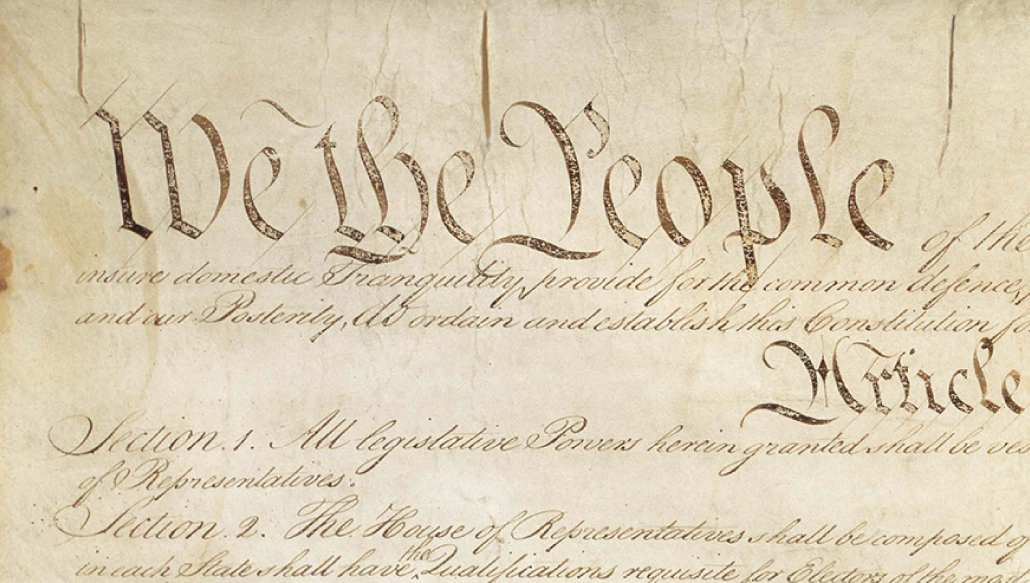 We the People of the
insure domestic Tranquility, provide for the common defence,
and our Posterity, do ordain and establish this Constitution fo
Article
Section. 1. All legislative Powers herein granted shall be ves
of Representatives.
Section. 2. The House of Representatives shall be composed of
in each State shall have the Qualifications requisite for Electors of the most